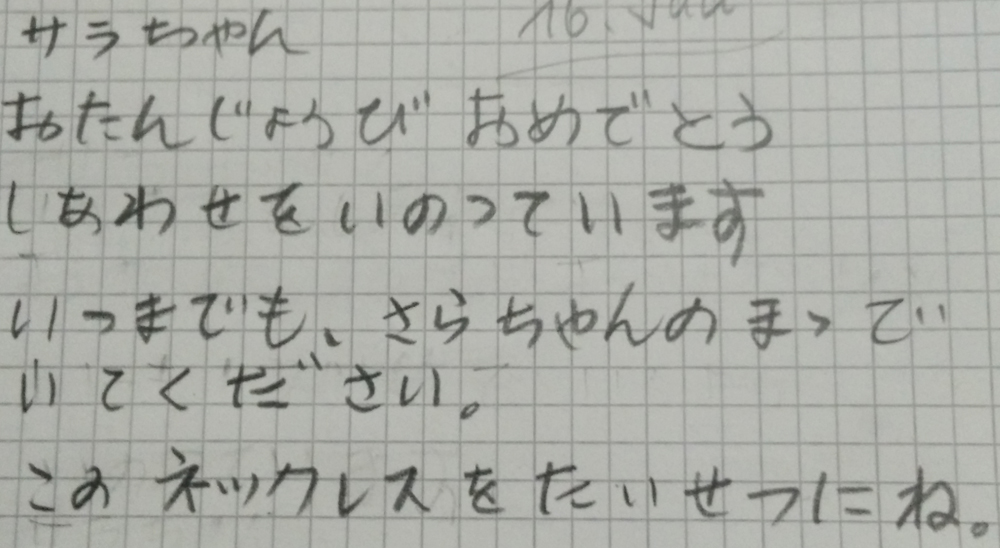 サラちゃん
おたんじょうび おめでとう
しあわせをいのっています
いつまでも、さらちゃんのまっで
いてください。
このネックレスをたいせつにね。